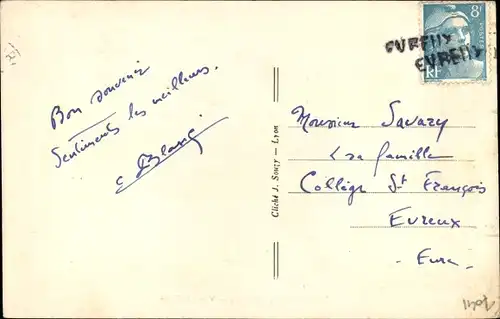 8F
POSTES
RF
EVREUX
EVREUX
Bon souvenir
Sentiments les meilleurs.
Monsieur Savary
& sa famille
Collège St François
Evreux
- Eure -
Cliché J. Souzy — Lyon